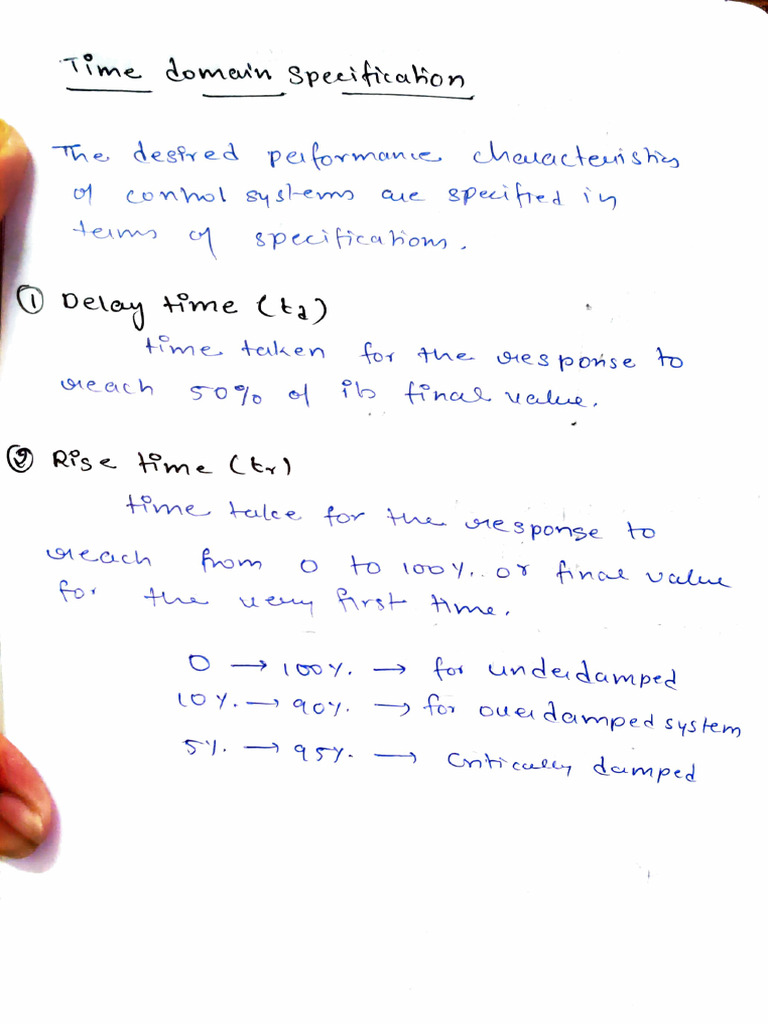 Time domain Specification
The desired performance characteristics
of control systems are specified in
terms of specifications.
① Delay time (td)
time taken for the response to
reach 50% of its final value.
② Rise time (tr)
time take for the response to
reach from 0 to 100%. or final value
for the very first time.
0 → 100%. → for underdamped
10%. → 90%. → for overdamped system
5%. → 95%. → Critically damped